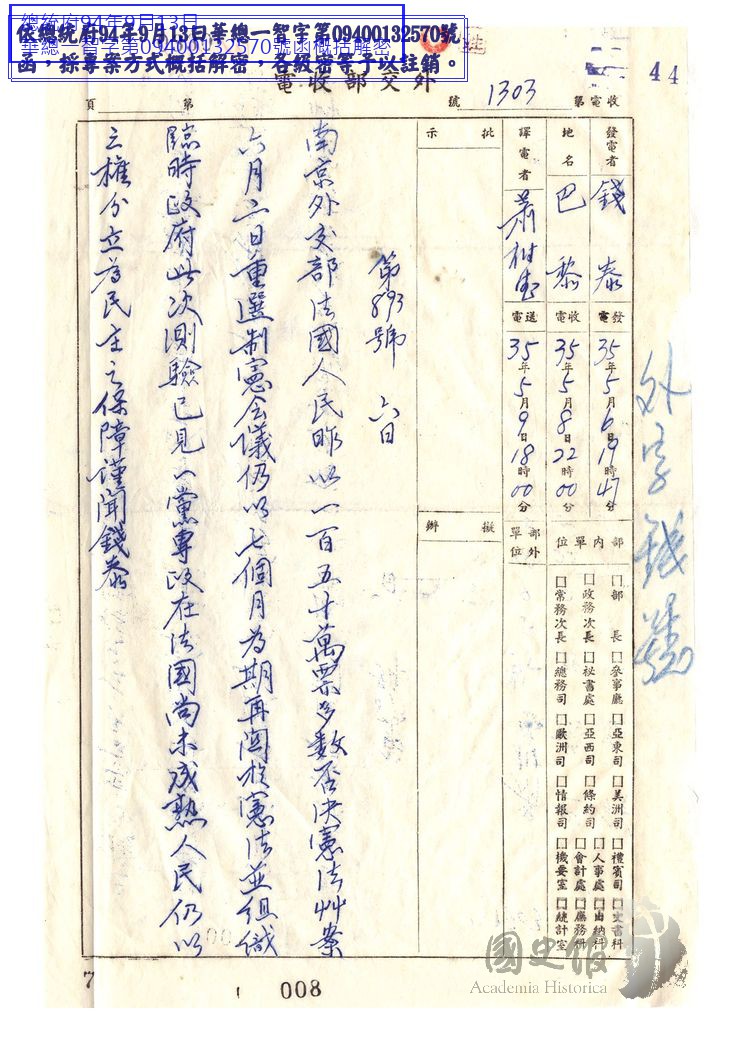 總統府94年9月13日
華總一智字第09400132570號函概括解密
依總統府94年9月13日華總一智字第09400132570號
函，採專案方式概括解密，各級密等予以註銷。
44
外交部收電
收電第1303號
第 頁
發電者 錢泰
地名 巴黎
譯電者
發電 35年5月6日19時47分
收電 35年5月8日22時00分
送電 35年5月9日18時00分
批示
擬辦
部內單位
部外單位
□部長 □參事廳 □亞東司 □美洲司 □禮賓司 □文書科
□政務次長 □祕書處 □亞西司 □條約司 □人事處 □出納科
□會計處 □庶務科
□常務次長 □總務司 □歐洲司 □情報司 □機要室 □統計室
第893號 六日
南京外交部法國人民昨以一百五十萬票多數否決憲法艸案
六月二日重選制憲會議仍以七個月為期再關於憲法並組織
臨時政府此次測驗已見一黨專政在法國尚未成熟人民仍以
三權分立為民主之保障謹聞錢泰
7
008
國史館
Academia Historica